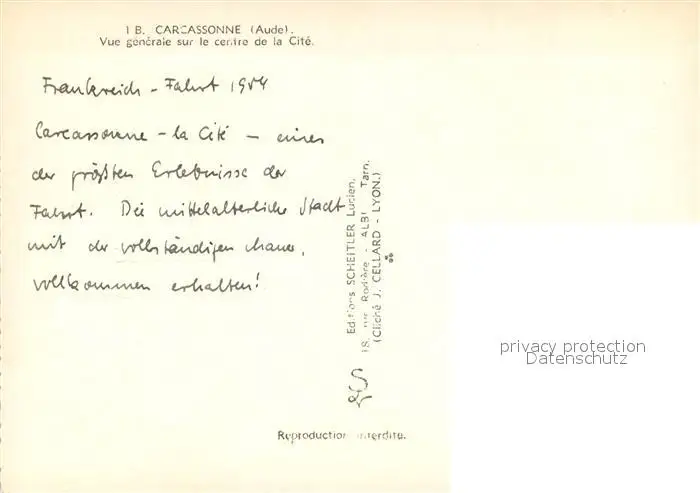 1 B. CARCASSONNE (Aude).
Vue générale sur le centre de la Cité.
Frankreich - Fahrt 1954
Carcassonne - la Cité - eines
der größten Erlebnisse der
Fahrt. Die mittelalterliche Stadt
mit der vollständigen Mauer,
vollkommen erhalten!
Editions SCHEITLER Lucien,
18, rue Rodière - ALBI Tarn.
(Cliché J. CELLARD - LYON.)
Reproduction interdite.
privacy protection
Datenschutz